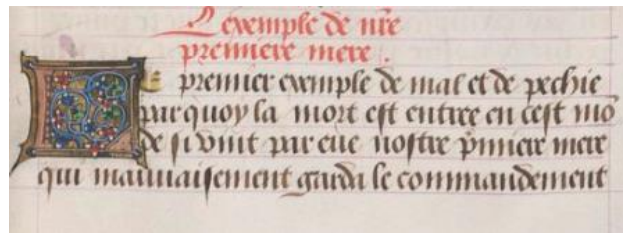 L exemple de nr̄e
premiere mere .
Le premier exemple de mal et de pechie
par quoy la mort est entree en cest mō
de si vint par eue nostre p̄miere mere
qui mauuaisement garda le commandement